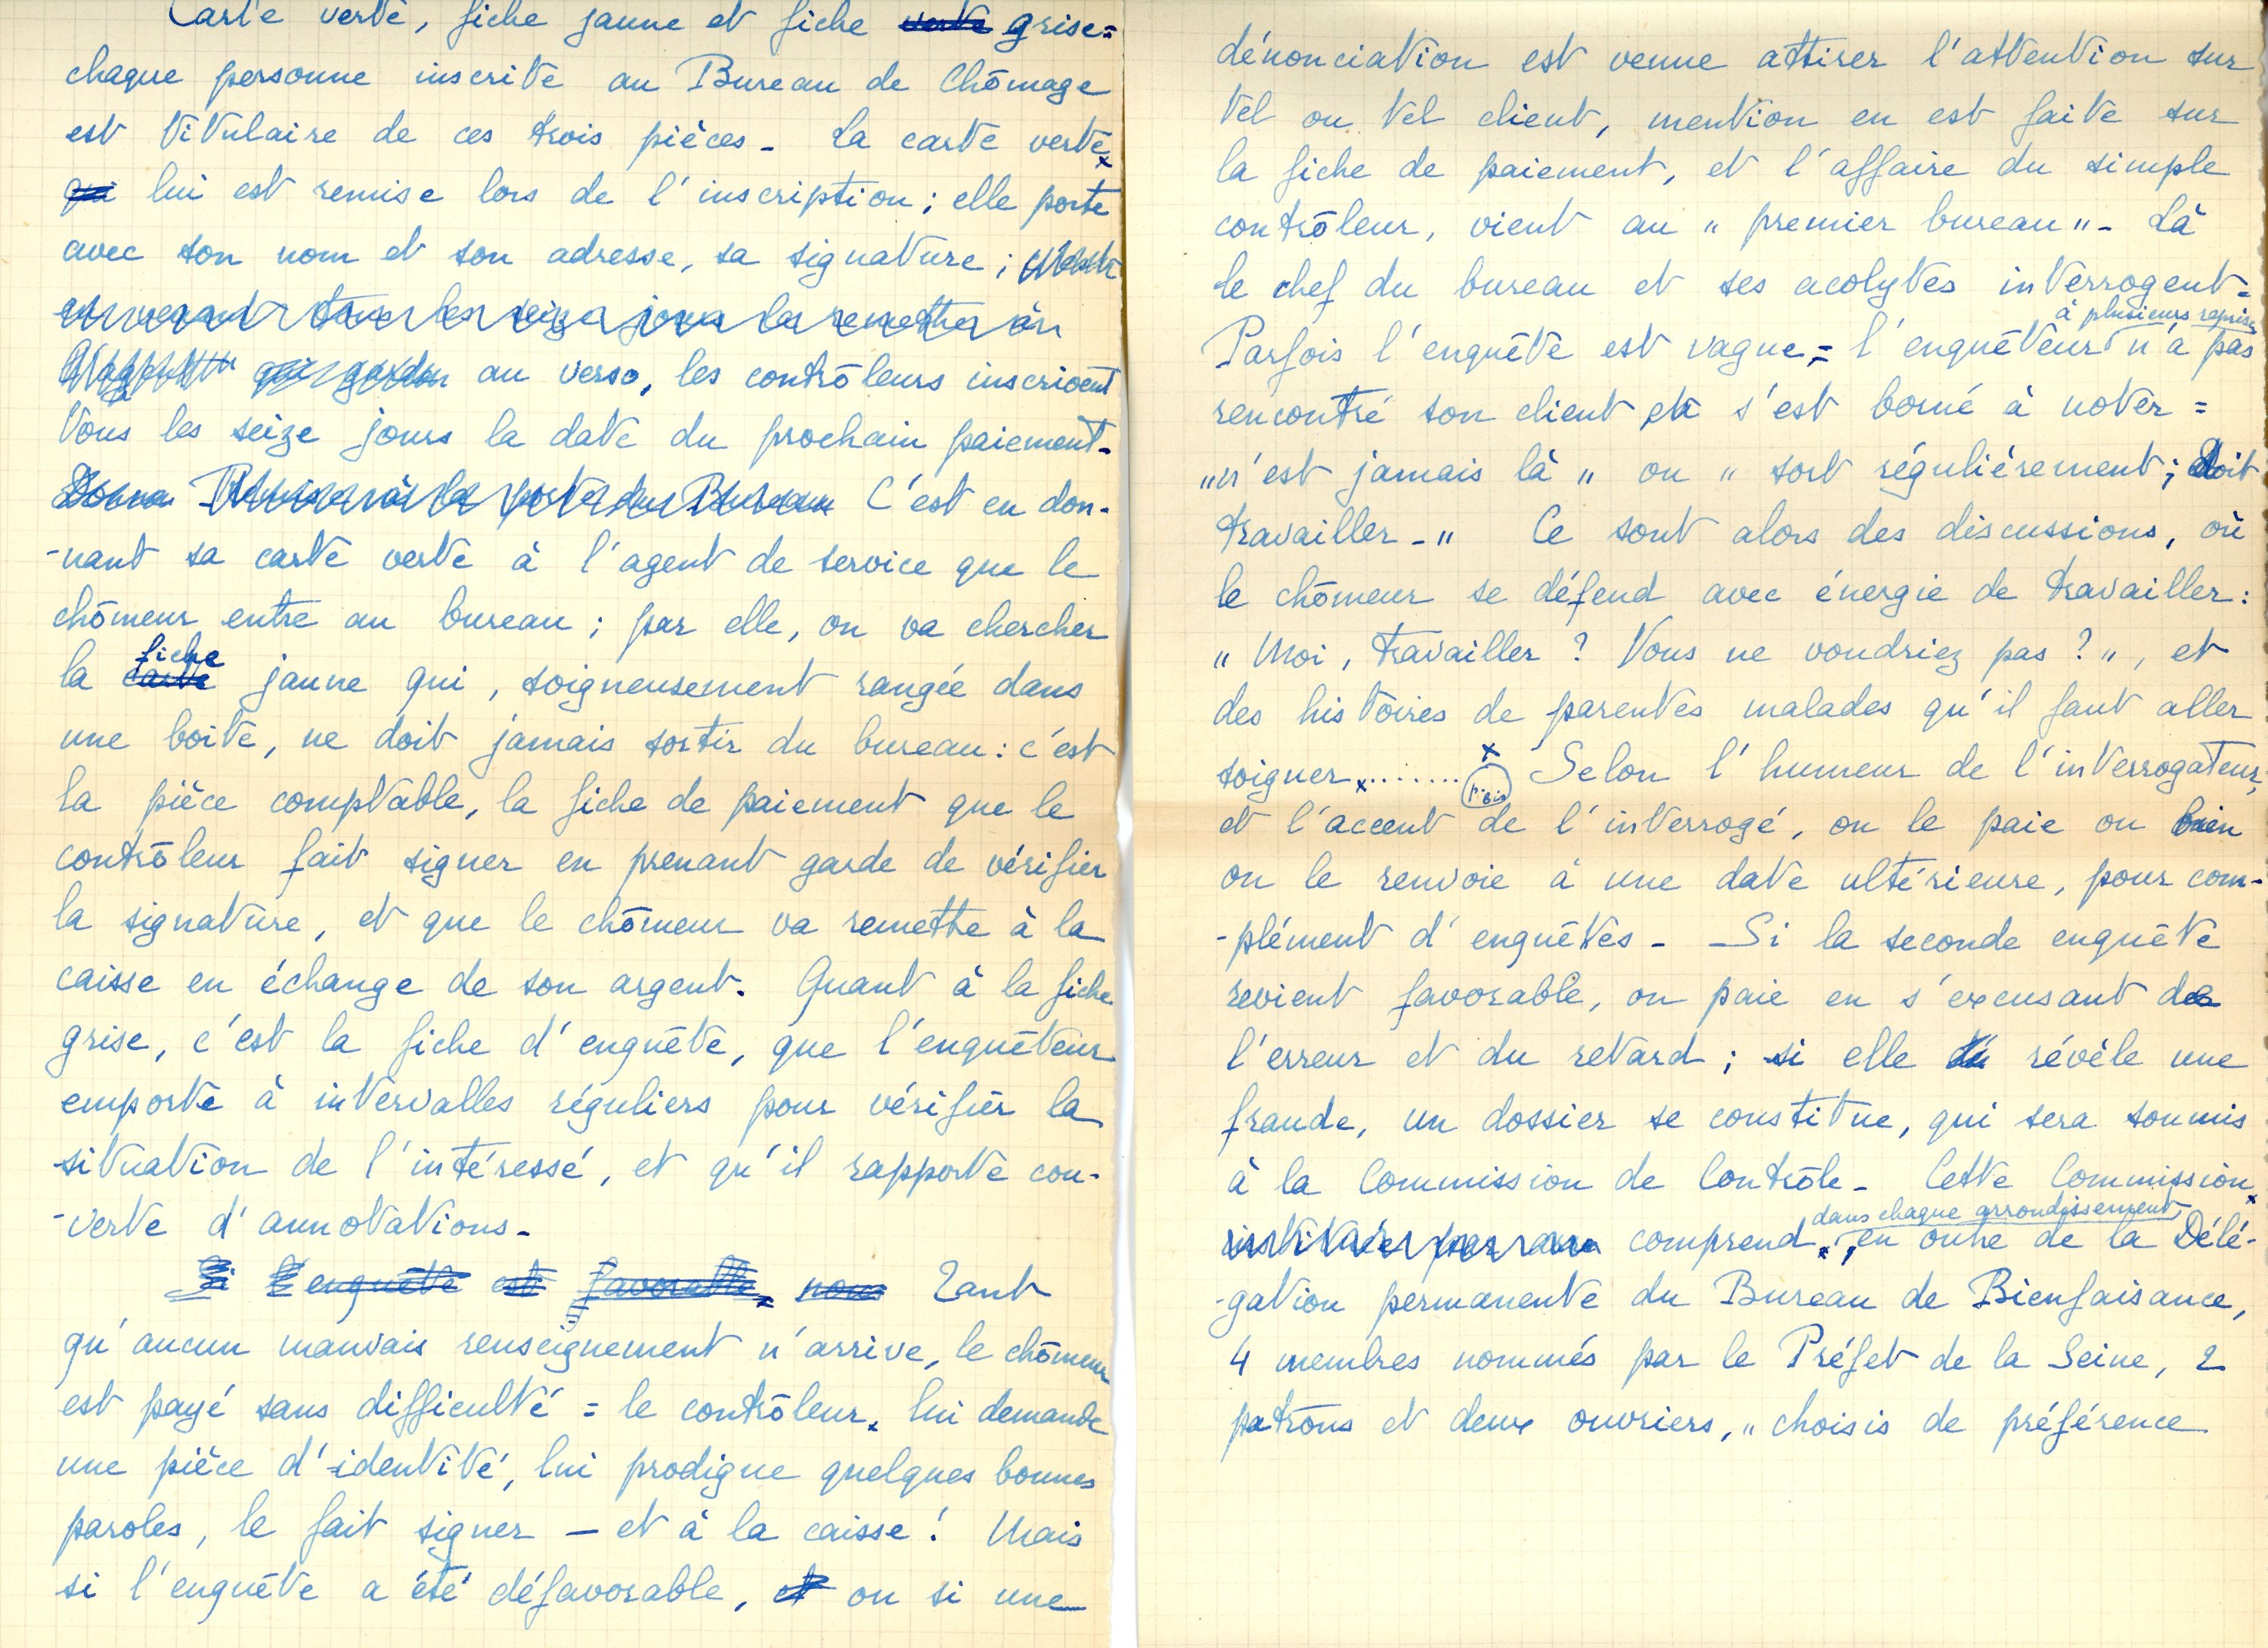 Carte verte, fiche jaune et fiche verte grise =
chaque personne inscrite au Bureau de Chômage
est titulaire de ces trois pièces - La carte verte
qui lui est remise lors de l'inscription ; elle porte
avec son nom et son adresse, sa signature ;
tous les seize jours la remettre
au verso, les contrôleurs inscrivent
tous les seize jours la date du prochain paiement.
C'est en don-
-nant sa carte verte à l'agent de service que le
chômeur entre au bureau ; par elle, on va chercher
fiche
la carte jaune qui, soigneusement rangée dans
une boîte, ne doit jamais sortir du bureau : c'est
la pièce comptable, la fiche de paiement que le
contrôleur fait signer en prenant garde de vérifier
la signature, et que le chômeur va remettre à la
caisse en échange de son argent. Quant à la fiche
grise, c'est la fiche d'enquête, que l'enquêteur
emporte à intervalles réguliers pour vérifier la
situation de l'intéressé, et qu'il rapporte cou-
-verte d'annotations -
Si l'enquête est favorable, nous Tant
qu'aucun mauvais renseignement n'arrive, le chômeur
est payé sans difficulté = le contrôleur lui demande
une pièce d'identité, lui prodigue quelques bonnes
paroles, le fait signer - et à la caisse ! Mais
si l'enquête a été défavorable, et ou si une
dénonciation est venue attirer l'attention sur
tel ou tel client, mention en est faite sur
la fiche de paiement, et l'affaire du simple
contrôleur, vient au " premier bureau " - Là
le chef du bureau et ses acolytes interrogent =
à plusieurs reprises
Parfois l'enquête est vague = l'enquêteur n'a pas
rencontré son client et s'est borné à noter =
" n'est jamais là " ou " sort régulièrement ; doit
travailler - " Ce sont alors des discussions, où
le chômeur se défend avec énergie de travailler :
" Moi, travailler ? Vous ne voudriez pas ? ", et
des histoires de parentes malades qu'il faut aller
soigner ......... Selon l'humeur de l'interrogateur,
et l'accent de l'interrogé, on le paie ou bien
on le renvoie à une date ultérieure, pour com-
-plément d'enquêtes - Si la seconde enquête
revient favorable, on paie en s'excusant de
l'erreur et du retard ; si elle révèle une
fraude, un dossier se constitue, qui sera soumis
à la Commission de Contrôle - Cette Commission
dans chaque arrondissement,
instituée par comprend, en outre de la Délé-
-gation permanente du Bureau de Bienfaisance,
4 membres nommés par le Préfet de la Seine, 2
patrons et deux ouvriers, " choisis de préférence